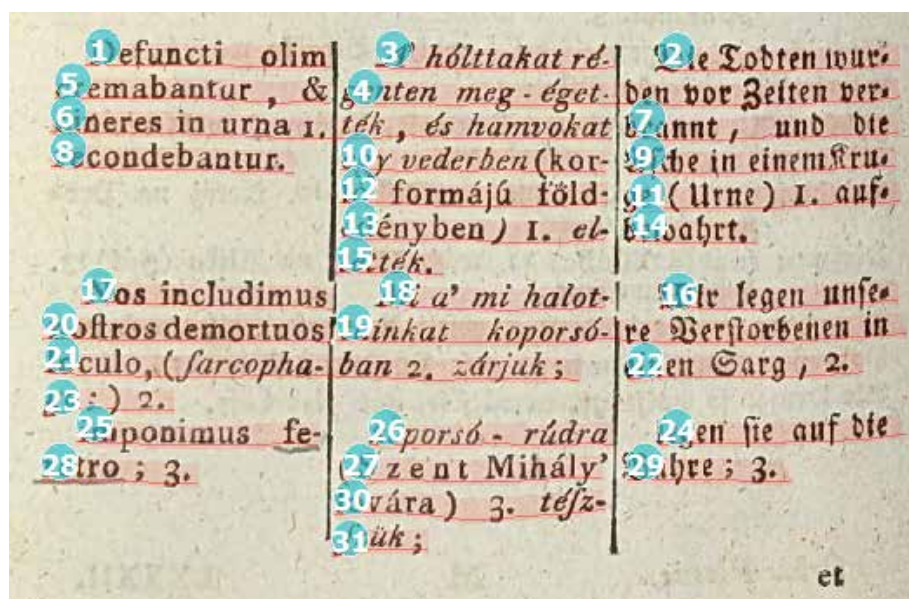 Defuncti olim
cremabantur , &
cineres in urna 1.
recondebantur.
Nos includimus
nostros demortuos
loculo, (ſarcopha-
) 2.
imponimus fe-
retro ; 3.
A' hólttakat ré-
genten meg - éget-
ték , és hamvokat
egy vederben (kor-
só formájú föld-
edényben) 1. el-
tették.
Mi a' mi halot-
tainkat koporsó-
ban 2. zárjuk ;
koporsó - rúdra
(Szent Mihály'
lovára) 3. téſz-
ſzük ;
Die Todten wur-
den vor Zeiten ver-
brannt , und die
Aſche in einem Kru-
ge (Urne) 1. auf-
bewahrt.
Wir legen unſe-
re Verſtorbenen in
einen Sarg , 2.
legen ſie auf die
Bahre ; 3.
et